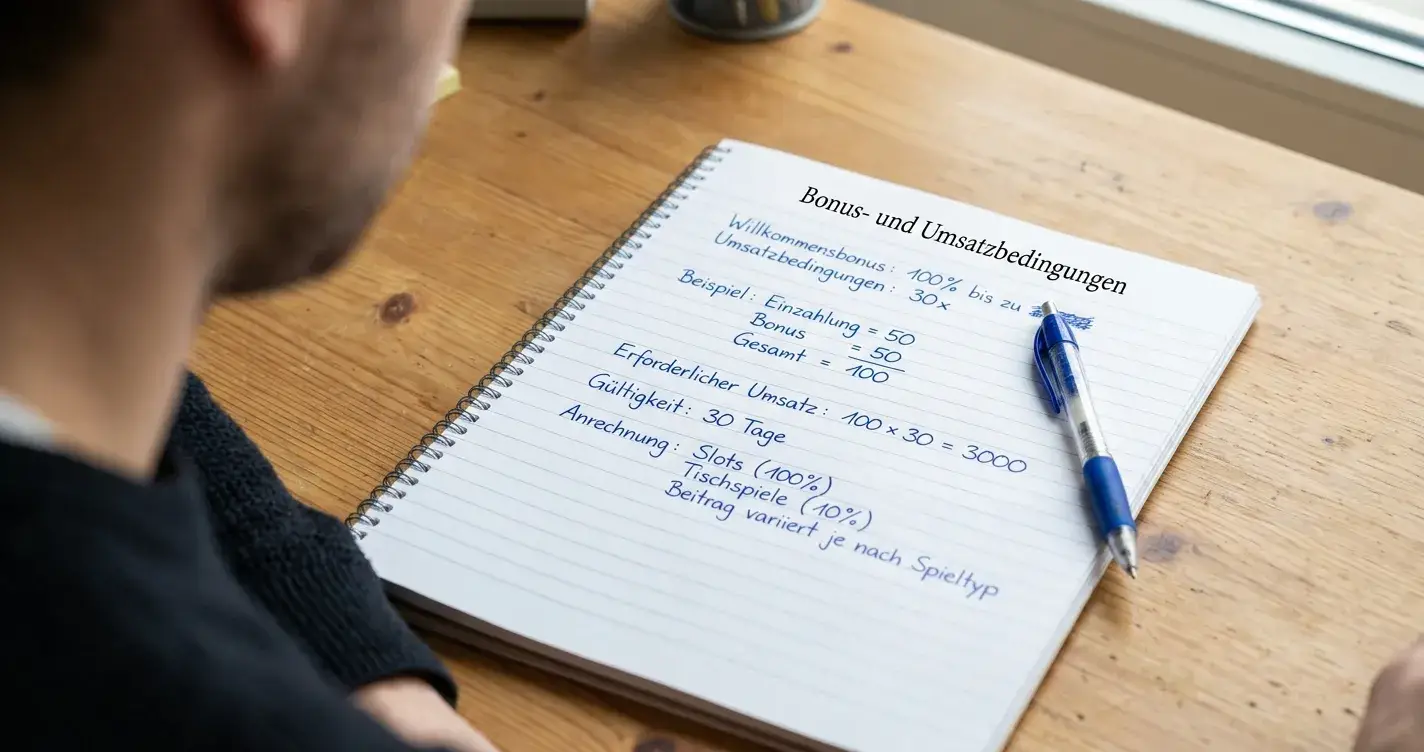 Bonus- und Umsatzbedingungen
Willkommensbonus: 100% bis zu
Umsatzbedingungen: 30x
Beispiel: Einzahlung = 50
Bonus = 50
Gesamt = 100
Erforderlicher Umsatz: 100 × 30 = 3000
Gültigkeit: 30 Tage
Anrechnung: Slots (100%)
Tischspiele (10%)
Beitrag variiert je nach Spieltyp